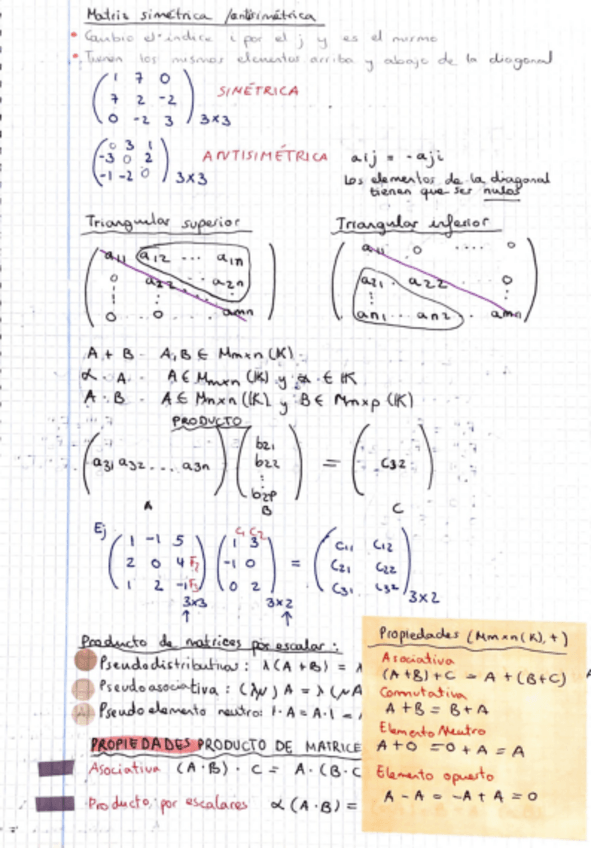 Matriz simétrica /antisimétrica
• Cambio el índice i por el j y es el mismo
• Tienen los mismos elementos arriba y abajo de la diagonal
1 7 0
7 2 -2
0 -2 3 3x3
SIMÉTRICA
0 3 1
-3 0 2
-1 -2 0 3x3
ANTISIMÉTRICA aij = -aji
Los elementos de la diagonal
tienen que ser nulos
Triangular superior
a11 a12 ... a1n
0 a22 ... a2n
0 0 amn
Triangular inferior
a11 0 .... 0
a21 a22 0
an1 ... an2 amn
A + B - A, B ∈ Mmxn (K)
α · A - A ∈ Mmxn (K) y α ∈ K
A · B - A ∈ Mmxn (K) y B ∈ Mnxp (K)
PRODUCTO
(a31 a32 ... a3n) (b21 b22 ⋮ b2p) = (c32)
A B C
Ej
C1 C2
1 -1 5
2 0 4 F2
1 2 -1 F3
3x3
1 3
-1 0
0 2
3x2
=
C11 C12
C21 C22
C31 C32
3x2
Producto de matrices por escalar:
Pseudodistributiva: λ(A+B) = λ
Pseudoasociativa: (λμ) A = λ (μA
Pseudo elemento neutro: 1·A = A·1 =
PROPIEDADES PRODUCTO DE MATRICE
Asociativa (A·B) · C = A·(B·C
Producto por escalares α(A·B) =
Propiedades (Mmxn(K), +)
Asociativa
(A+B)+C = A+(B+C)
Conmutativa
A+B = B+A
Elemento Neutro
A+0 = 0+A = A
Elemento opuesto
A-A = -A+A = 0